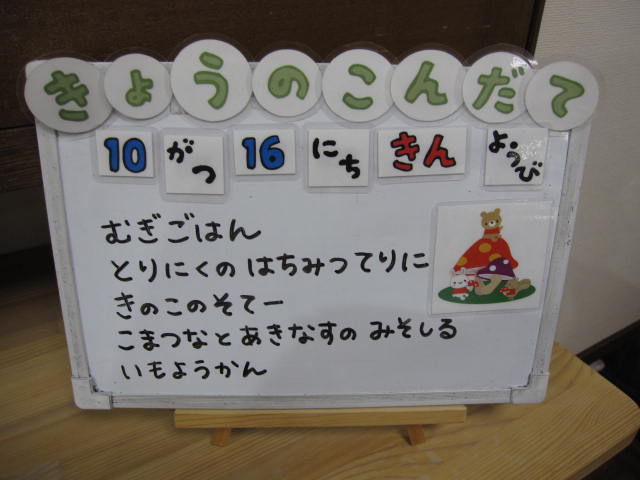 きょうのこんだて
10 がつ 16 にち きん ようび
むぎごはん
とりにくの はちみつてりに
きのこのそてー
こまつなとあきなすの みそしる
いもようかん